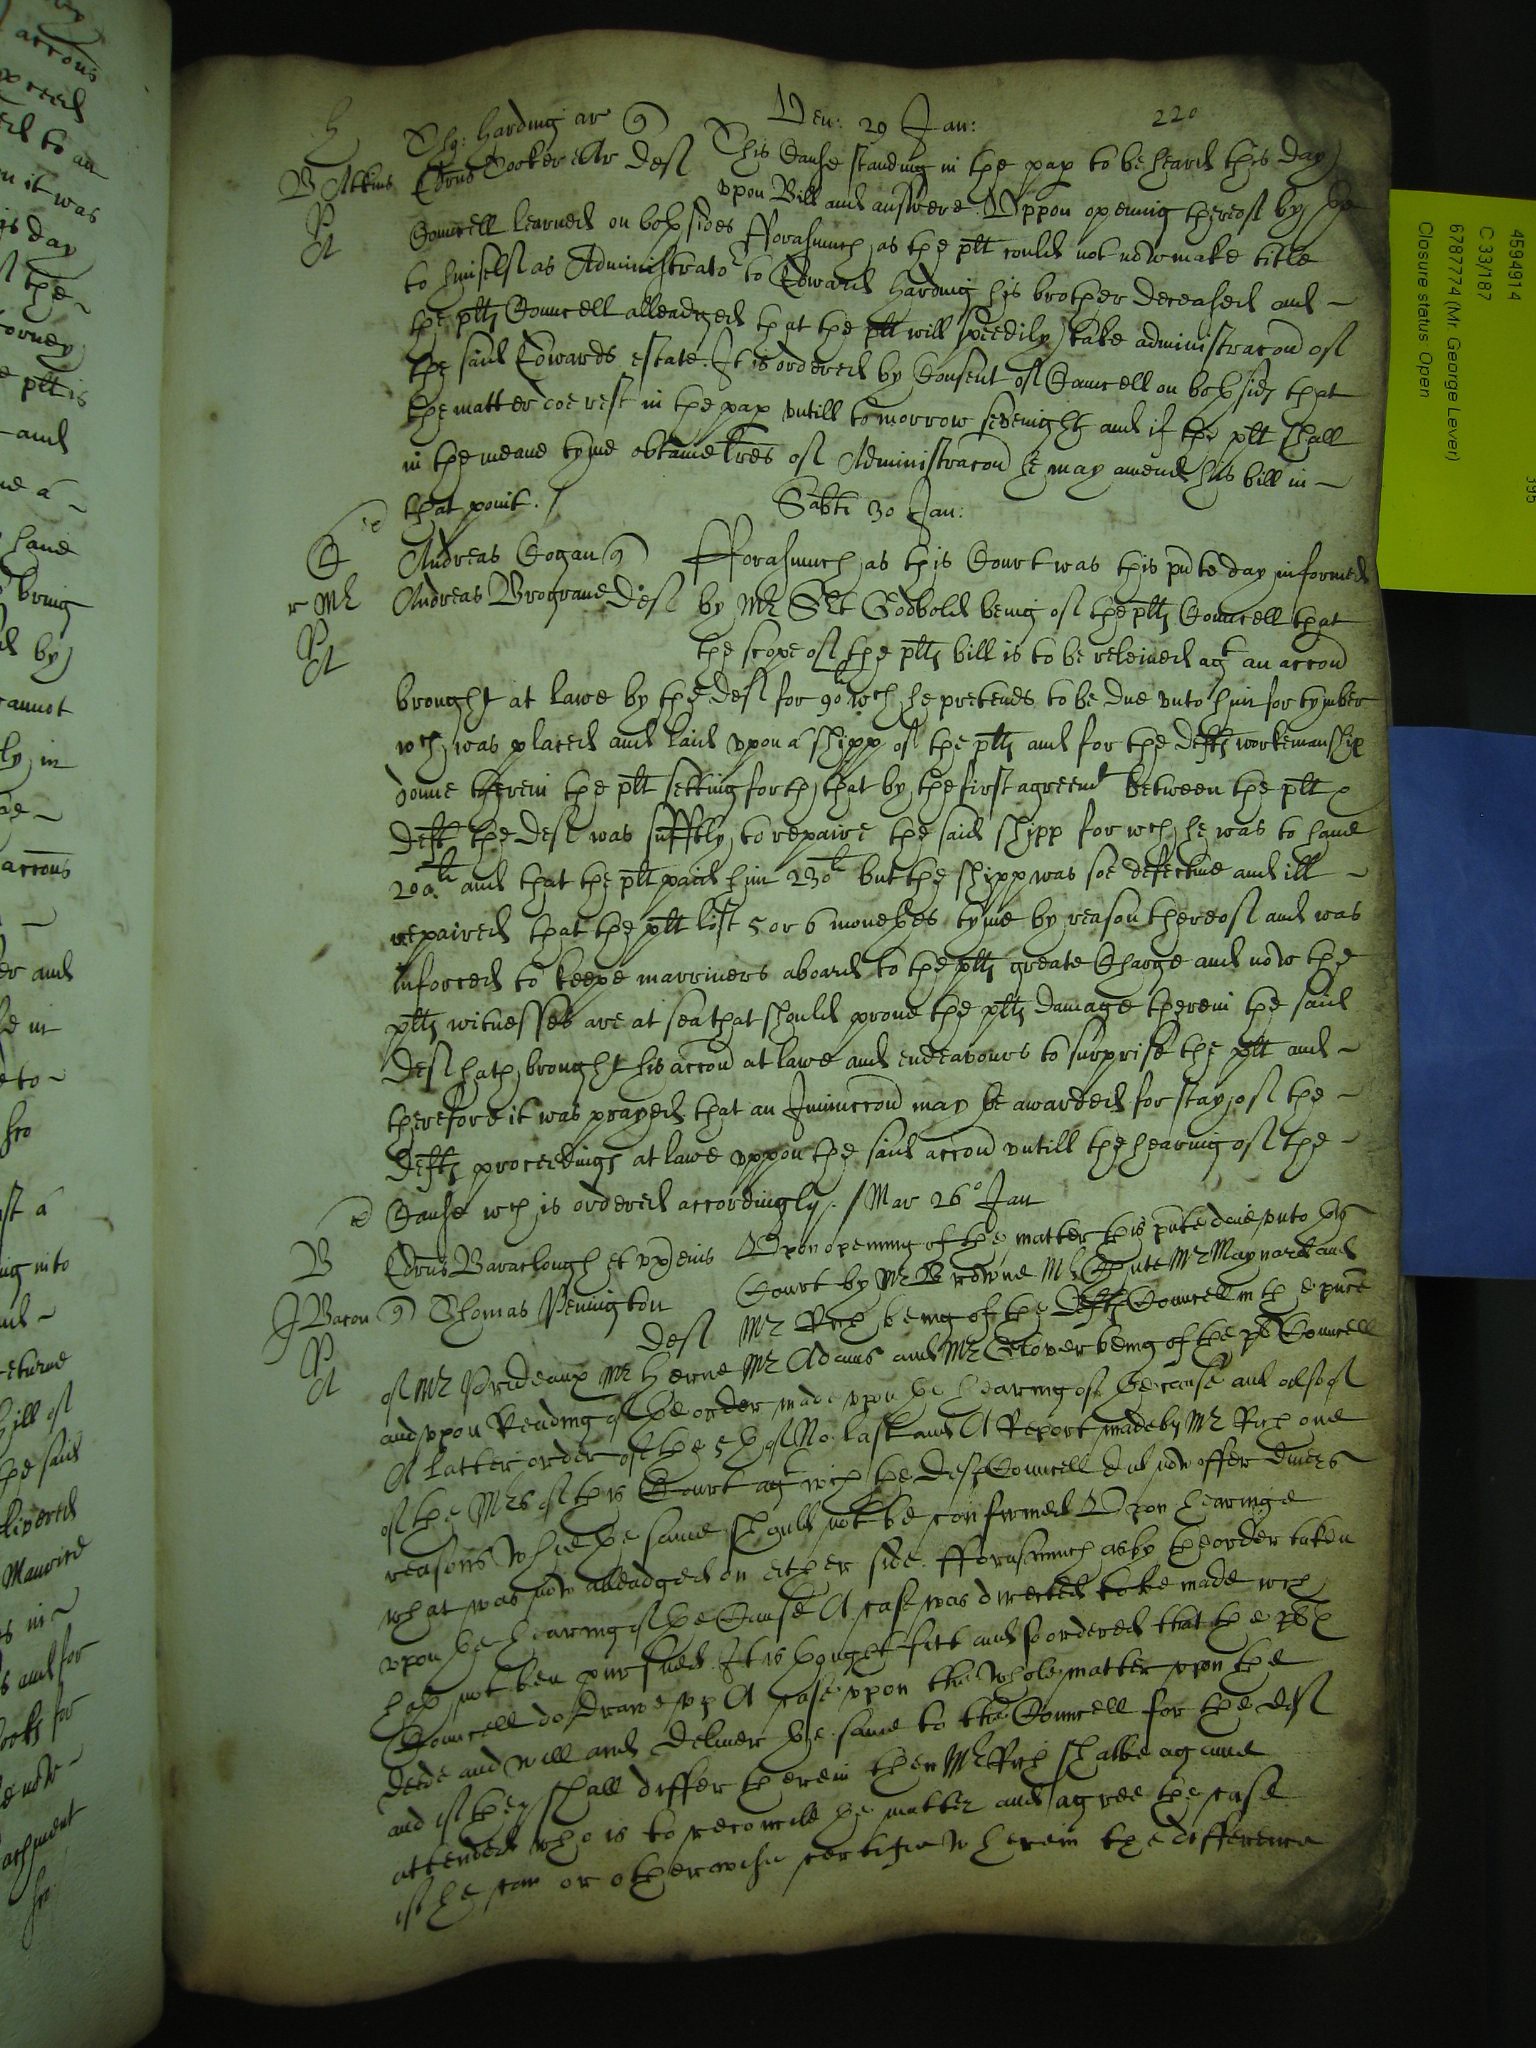 220
Ven: 29 Jan:
H
Tho: Harding ar q
B Atkins
Edrus Cooker Ar Deft
This Cause standing in the pap to be heard this day
upon Bill and answere. Uppon opening thereof by
P
A
Councell learned on both sides fforasmuch as the plt could not now make title
to himself as Administrator to Edward Harding his brother deceased and
the plts Councell alleadged that the plt will speedily take administracon of
the said Edwards estate. It is ordered by Consent of Councell on both sides that
the matter doe rest in the pap untill tomorrow sevenight and if the plt shall
in the meane tyme obtaine lres of Administracon he may amend his bill in
that point.
Sabti 30 Jan:
C
Andreas Cogan q
fforasmuch as this Court was this pnte day informed
r Mr
Andreas Brograue Deft
by Mr Sjt Godbold being of the plts Councell that
P
A
the scope of the plts bill is to be releived agt an accon
brought at lawe by the deft for 90li wch he pretends to be due unto him for tymber
wch was placed and laid upon a shipp of the plts and for the defts workemanship
donne therein the plt setting forth that by the first agreemt between the plt &
deft the deft was sufftly to repaire the said shipp for wch he was to haue
200li and that the plt paid him 230li but the shipp was soe defectiue and ill
repaired that the plt lost 5 or 6 monethes tyme by reason thereof and was
inforced to keepe marriners aboard to the plts greate Charge and now the
plts witnesses are at sea that should proue the plts damage therein the said
deft hath brought his accon at lawe and endeavours to surprise the plt and
therefore it was prayed that an Iniunccon may be awarded for stay of the
defts proceedings at lawe uppon the said accon untill the hearing of the
Cause wch is ordered accordingly. / Mar 26o Jan
B
Edrus Baraclough et ux eius
Upon opening of the matter this pnte daie unto this
J Bacon
q Thomas Penington
Deft
Court by Mr Browne Mr Chute Mr Maynard and
P
A
Mr Rich being of the Defts Councell in the pnce
of Mr Prideaux Mr Herne Mr Adams and Mr Glover being of the plts Councell
and upon Reading of the order made upon the hearing of the cause and also of
A latter order of the 5th of No: last and A Report made by Mr Rich one
of the Mrs of this Court agt wch the Defts Councell did now offer divers
reasons whie the same should not be confirmed Upon hearinge
what was now alleadged on either side. fforasmuch as by the order taken
upon the hearing of the Cause A case was directed to be made wch
hath not ben pursued. It is thought fitt and so ordered that the plts
Councell do Drawe up A case upon the whole matter upon the
deede and will and deliuer the same to the Councell for the deft
and if they shall differ therein then Mr Rich shalbe againe
attended who is to reconcile the matter and agree the case
if he can or otherwise certifie wherein the difference
4594914
C 33/187
6787774 (Mr. George Lever)
Closure status: Open